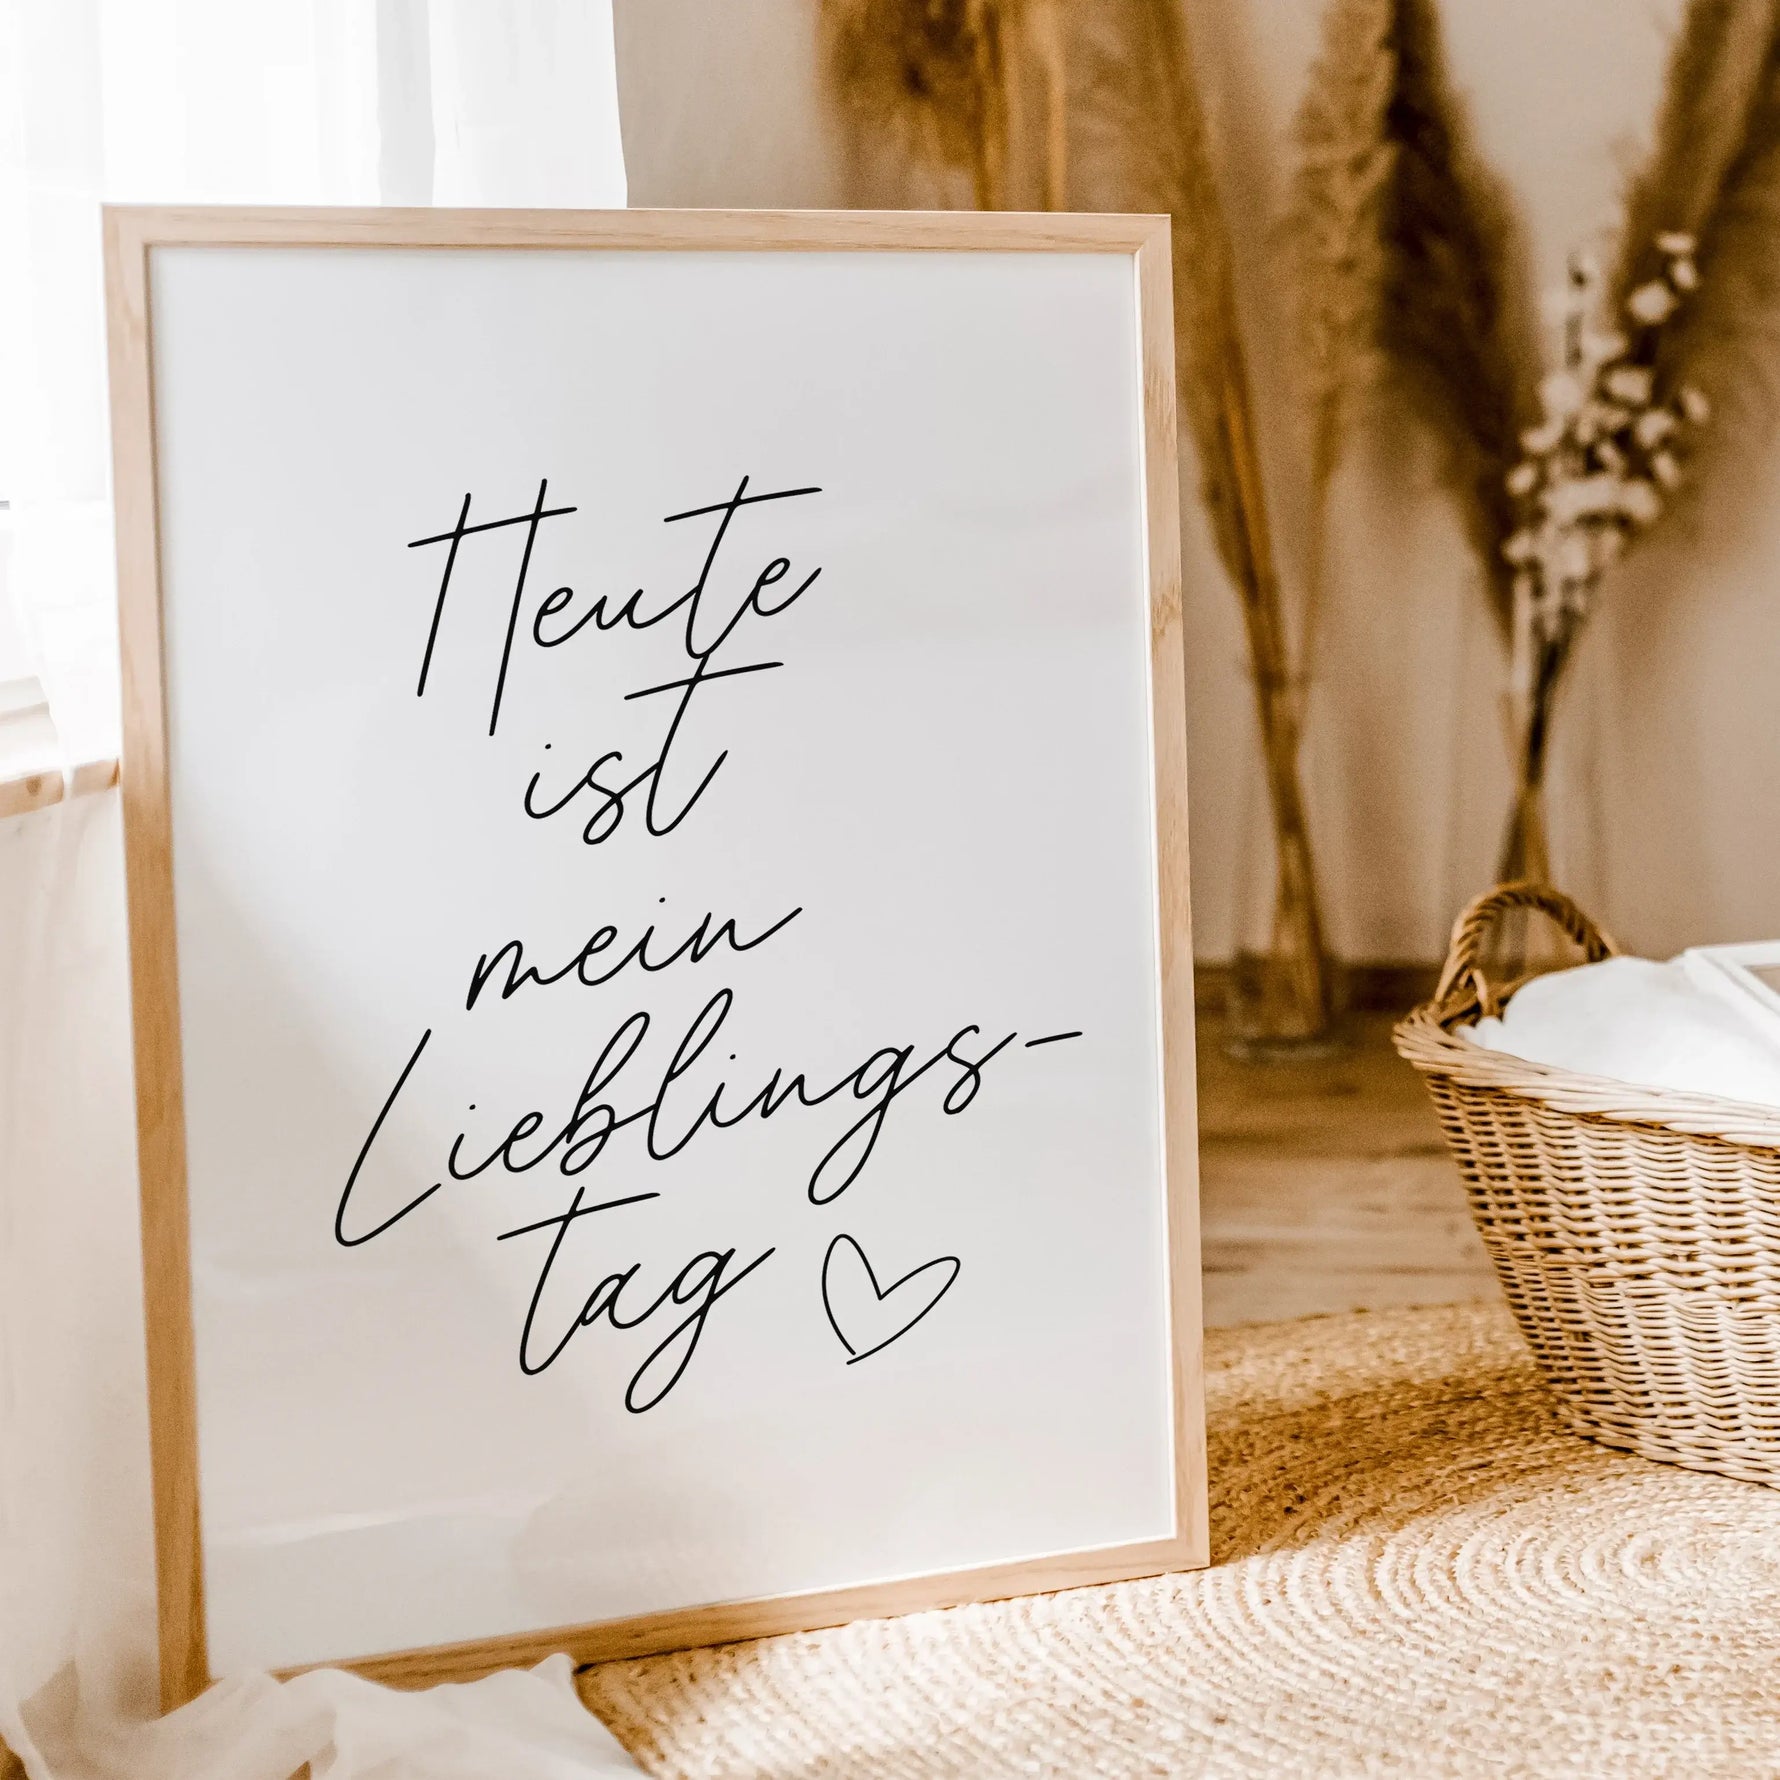 Heute
ist
mein
Lieblings-
tag